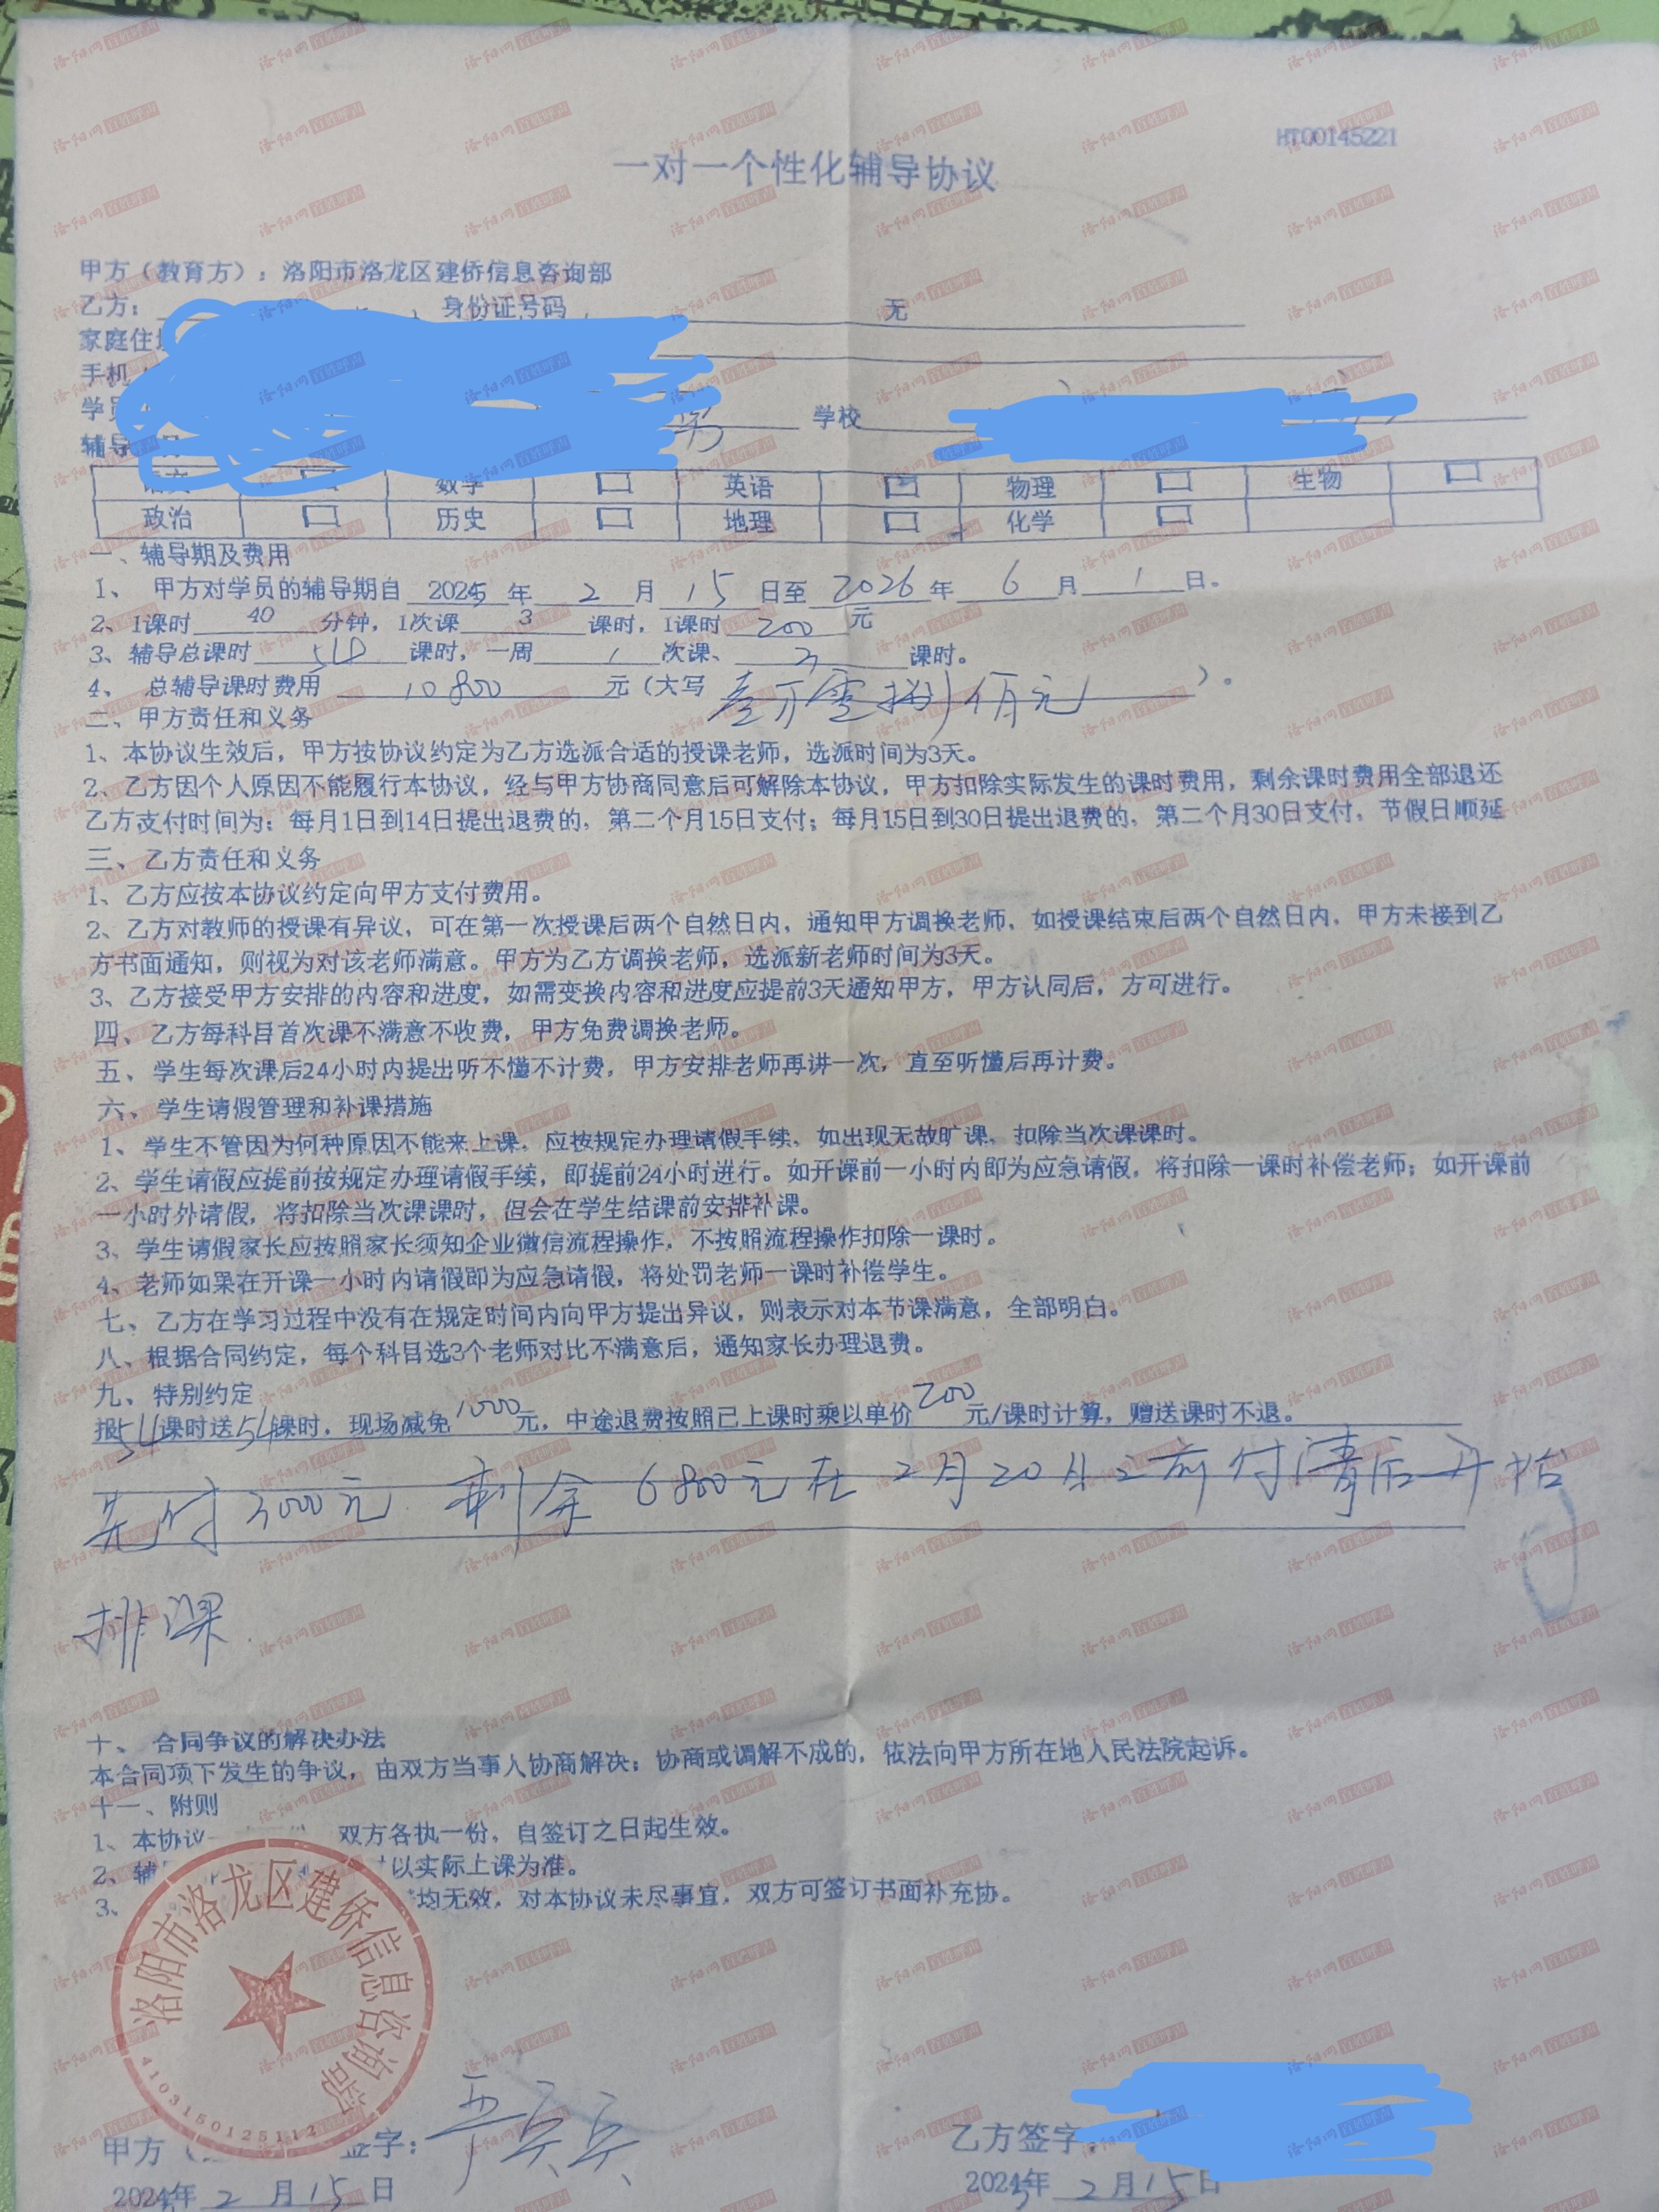 HT00145221
一对一个性化辅导协议
甲方（教育方）：洛阳市洛龙区建侨信息咨询部
乙方： 身份证号码 无
家庭住
手机
学员 男 学校
辅导
语文 □ 数学 □ 英语 □ 物理 □ 生物 □
政治 □ 历史 □ 地理 □ 化学 □
一、辅导期及费用
1、 甲方对学员的辅导期自 2025 年 2 月 15 日至 2026 年 6 月 1 日。
2、1课时 40 分钟，1次课 3 课时，1课时 200 元
3、辅导总课时 课时，一周 1 次课、 3 课时。
4、 总辅导课时费用 10800 元（大写 壹万零捌佰元 ）。
二、甲方责任和义务
1、本协议生效后，甲方按协议约定为乙方选派合适的授课老师，选派时间为3天。
2、乙方因个人原因不能履行本协议，经与甲方协商同意后可解除本协议，甲方扣除实际发生的课时费用，剩余课时费用全部退还
乙方支付时间为：每月1日到14日提出退费的，第二个月15日支付；每月15日到30日提出退费的，第二个月30日支付，节假日顺延
三、乙方责任和义务
1、乙方应按本协议约定向甲方支付费用。
2、乙方对教师的授课有异议，可在第一次授课后两个自然日内，通知甲方调换老师，如授课结束后两个自然日内，甲方未接到乙
方书面通知，则视为对该老师满意。甲方为乙方调换老师，选派新老师时间为3天。
3、乙方接受甲方安排的内容和进度，如需变换内容和进度应提前3天通知甲方，甲方认同后，方可进行。
四、乙方每科目首次课不满意不收费，甲方免费调换老师。
五、学生每次课后24小时内提出听不懂不计费，甲方安排老师再讲一次，直至听懂后再计费。
六、学生请假管理和补课措施
1、学生不管因为何种原因不能来上课，应按规定办理请假手续，如出现无故旷课，扣除当次课课时。
2、学生请假应提前按规定办理请假手续，即提前24小时进行。如开课前一小时内即为应急请假，将扣除一课时补偿老师；如开课前
一小时外请假，将扣除当次课课时，但会在学生结课前安排补课。
3、学生请假家长应按照家长须知企业微信流程操作，不按照流程操作扣除一课时。
4、老师如果在开课一小时内请假即为应急请假，将处罚老师一课时补偿学生。
七、乙方在学习过程中没有在规定时间内向甲方提出异议，则表示对本节课满意，全部明白。
八、根据合同约定，每个科目选3个老师对比不满意后，通知家长办理退费。
九、特别约定
报54课时送54课时，现场减免1000元，中途退费按照已上课时乘以单价200元/课时计算，赠送课时不退。
先付3000元 剩余 6800元在 2月20日之前付清后开始
排课
十、 合同争议的解决办法
本合同项下发生的争议，由双方当事人协商解决；协商或调解不成的，依法向甲方所在地人民法院起诉。
十一、附则
1、本协议 双方各执一份，自签订之日起生效。
2、辅 以实际上课为准。
3、 均无效，对本协议未尽事宜，双方可签订书面补充协。
洛阳市洛龙区建侨信息咨询部
4103150125112
甲方（ 签字： 乙方签字：
2025年 2 月 15 日 2025年 2 月 15 日
洛阳网 百姓呼声